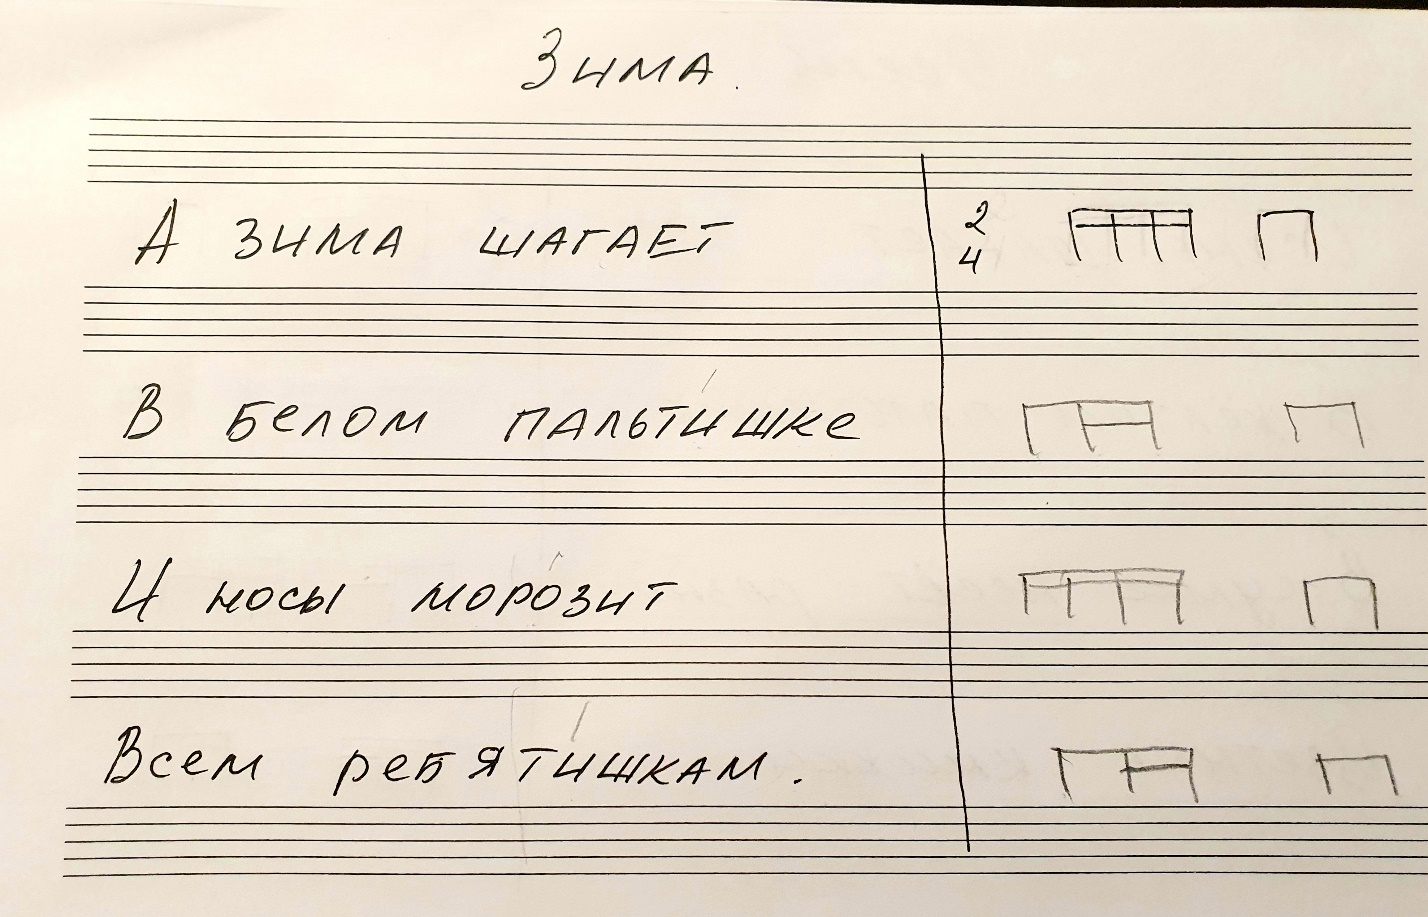 Зима.
А зима шагает 2
4
В белом пальти́шке
И носы моро́зит
Всем ребяти́шкам.